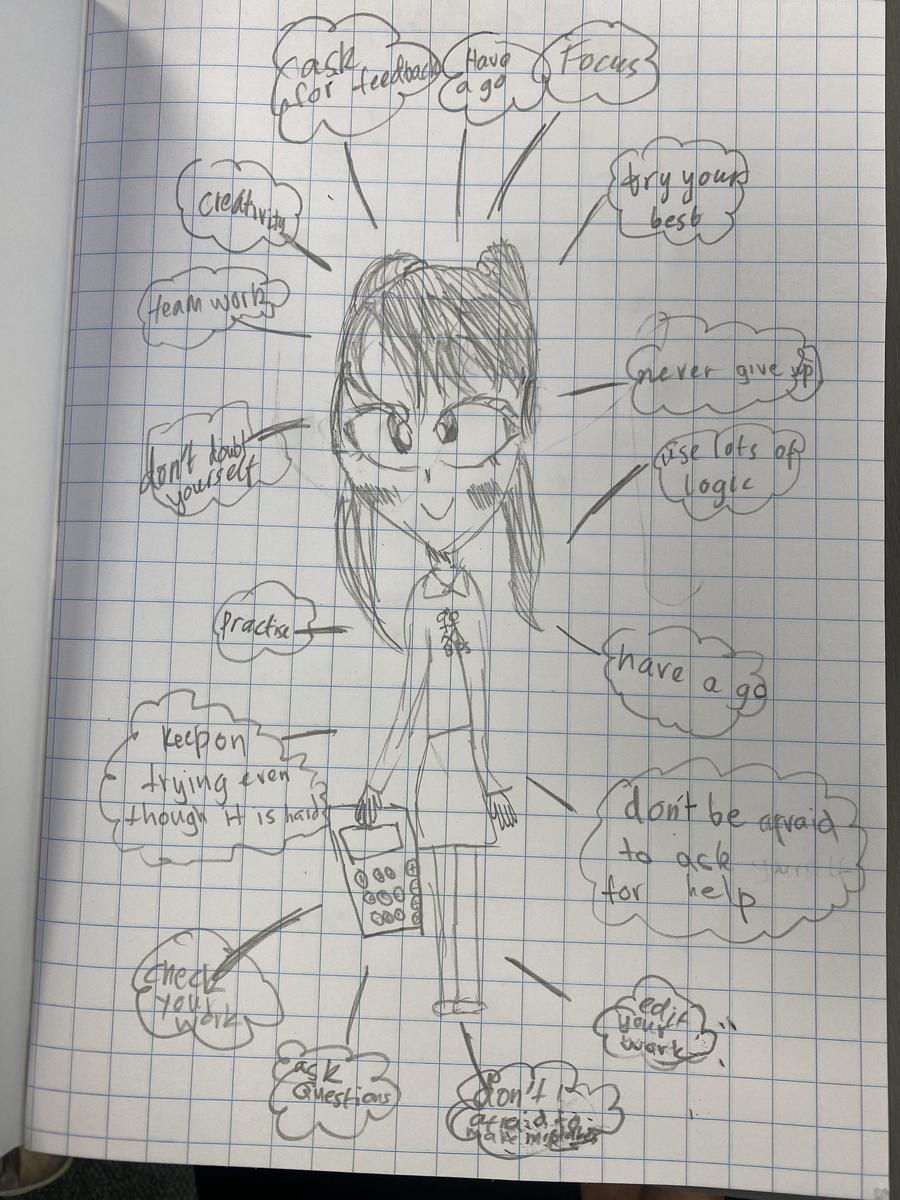 ask
for feedback
Have
a go
Focus
creativity
try your
best
team work
never give up
don't doubt
yourself
use lots of
logic
practise
have a go
keep on
trying even
though it is hard
don't be afraid
to ask yourself
for help
check
your
work
edit
your
work
ask
questions
don't
afraid to
make mistakes